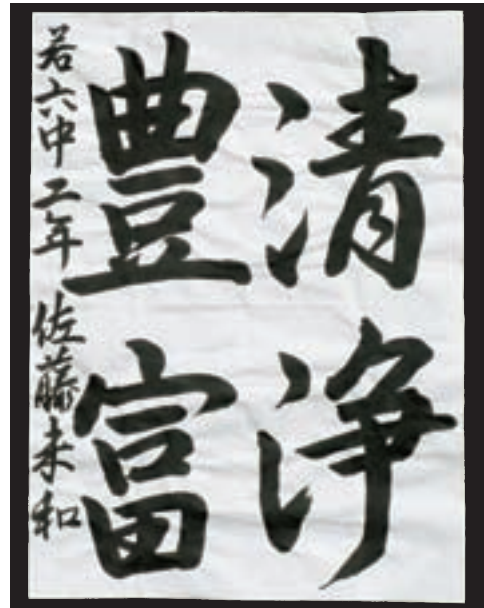 清浄
豊富
若六中二年 佐藤未和